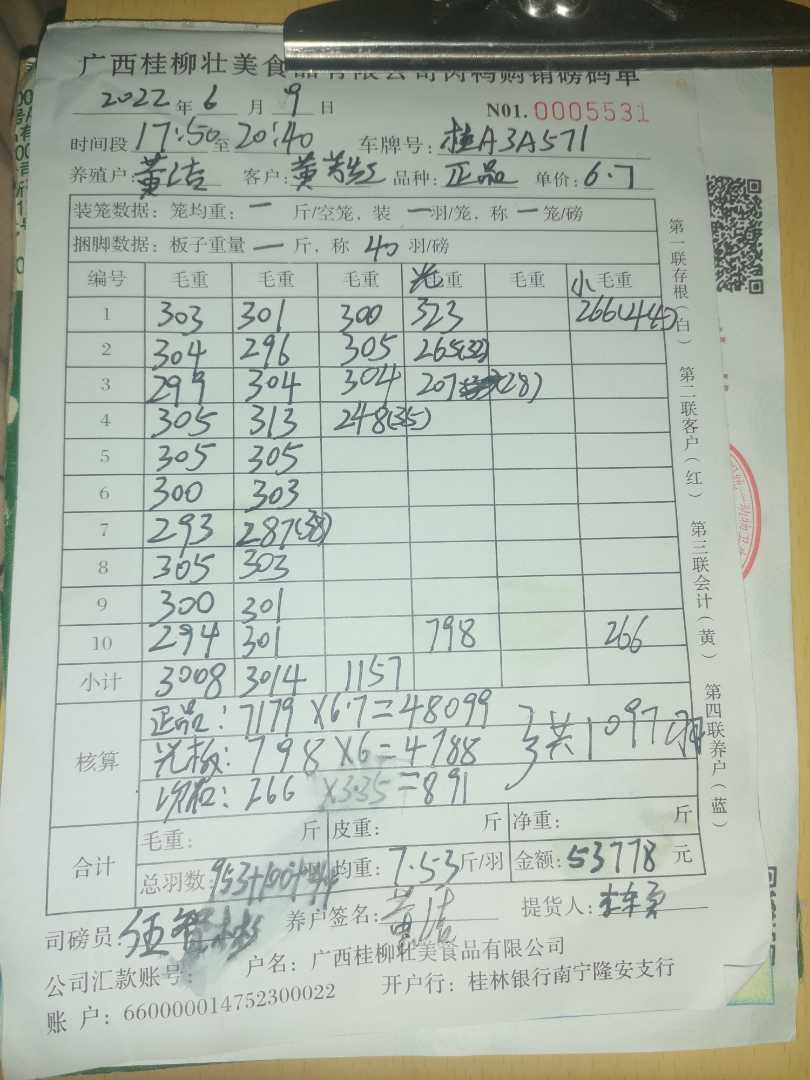 广西桂柳壮美食品有限公司肉鸭购销磅码单
2022年6月9日 N01.0005531
时间段17:50至20:40 车牌号:桂A3A571
养殖户:黄洁 客户:黄 品种:正品 单价:6.7
装笼数据:笼均重:一斤/空笼,装一羽/笼,称一笼/磅
捆脚数据:板子重量一斤,称40羽/磅
编号 毛重 毛重 毛重 光重 毛重 小毛重
1 303 301 300 323 266(44)
2 304 296 305 265(32)
3 299 304 304 207(28)
4 305 313 248(35)
5 305 305
6 300 303
7 293 287(38)
8 305 303
9 300 301
10 294 301 798 266
小计 3008 3014 1157
核算
正品:7179×6.7=48099
光板:798×6=4788
次:266×3.35=891
共1097羽
合计
毛重: 斤 皮重: 斤 净重: 斤
总羽数:953+100+44 均重:7.53斤/羽 金额:53778元
司磅员: 养户签名:黄洁 提货人:
公司汇款账号: 户名:广西桂柳壮美食品有限公司
账户:660000014752300022 开户行:桂林银行南宁隆安支行
第一联存根(白) 第二联客户(红) 第三联会计(黄) 第四联养户(蓝)